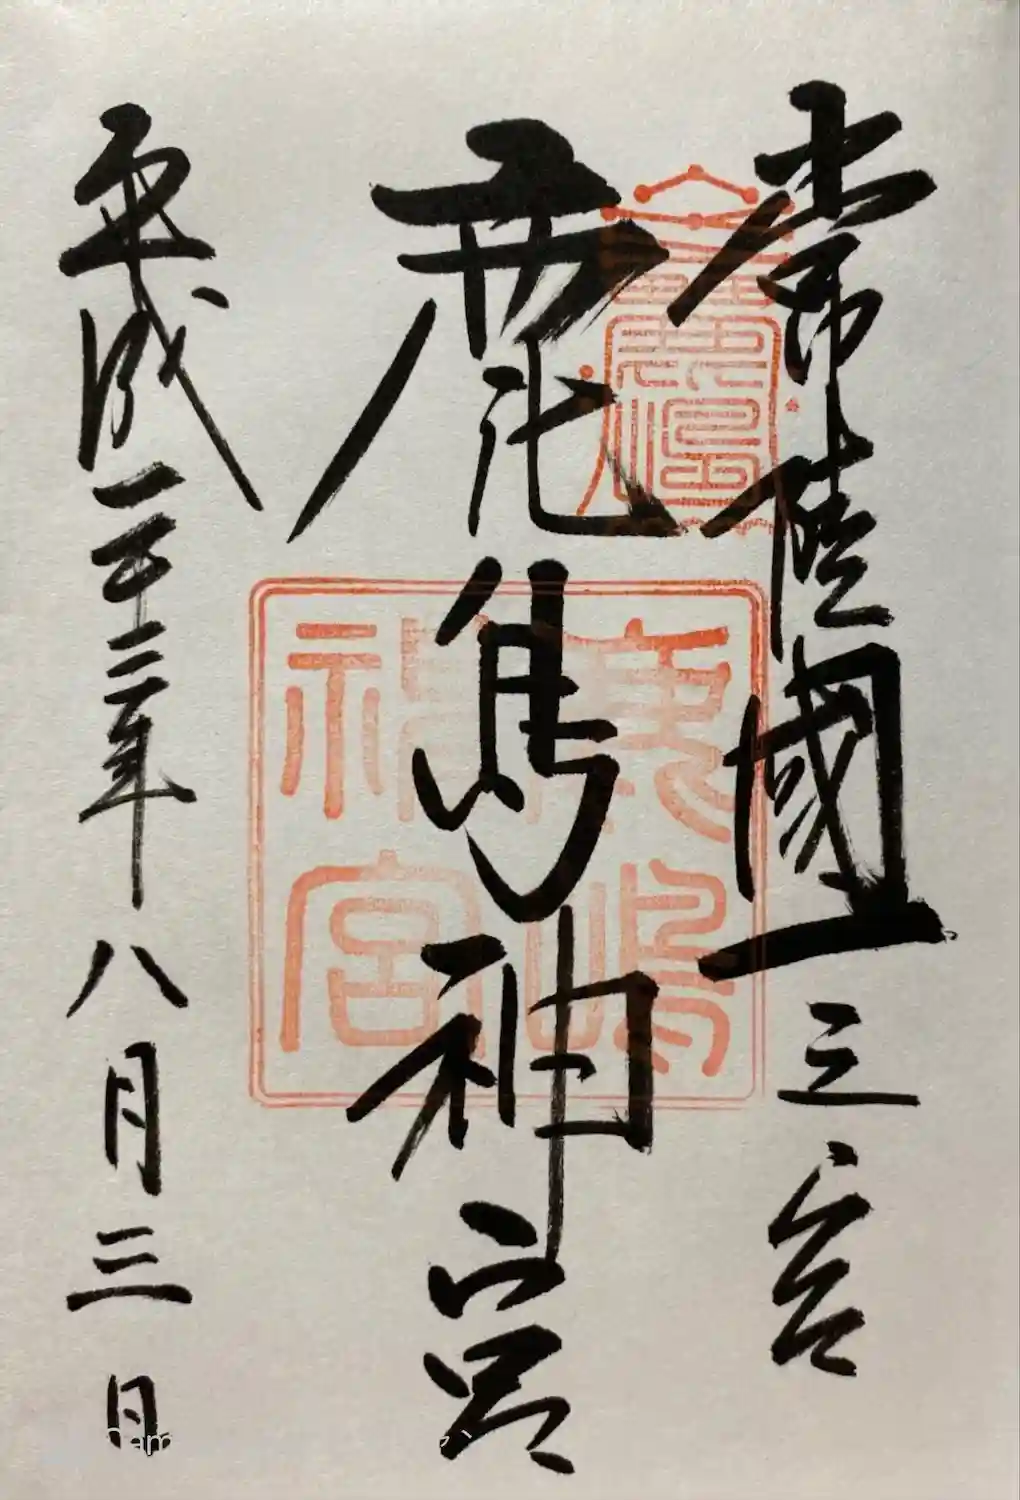 常陸國一之宮
鹿島神宮
鹿嶋
神宮
平成二十三年八月三日